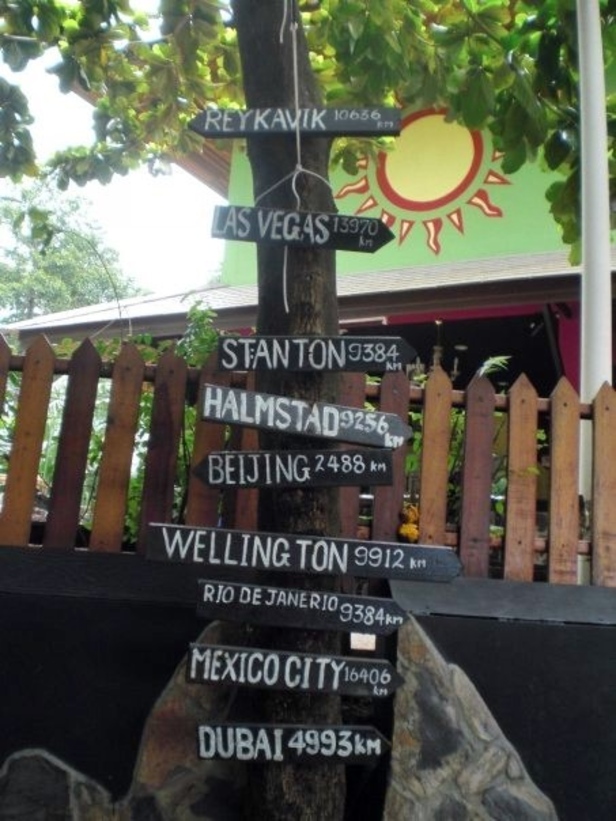 REYKAVIK 10656 km
LAS VEGAS 13970 km
STANTON 9384 km
HALMSTAD 9256 km
BEIJING 2488 KM
WELLINGTON 9912 KM
RIO DE JANERIO 9384KM
MEXICO CITY 16406 km
DUBAI 4993km